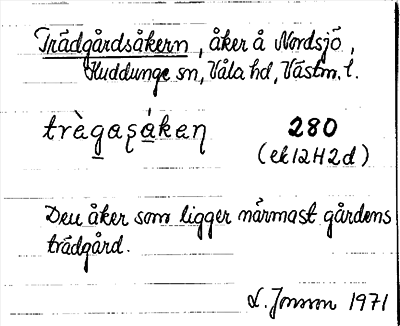 Trädgårdsåkern, åker å Nordsjö,
Huddunge sn, Våla hd, Västm. l.
trɛ̀gaʂákaɳ 280
(ek 12 H 2 d)
Den åker som ligger närmast gårdens
trädgård.
L. Jonson 1971